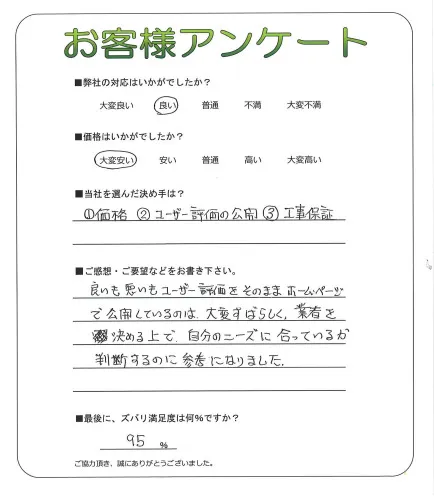 お客様アンケート
■弊社の対応はいかがでしたか？
大変良い 良い 普通 不満 大変不満
■価格はいかがでしたか？
大変安い 安い 普通 高い 大変高い
■当社を選んだ決め手は？
①価格 ② ユーザー評価の公開 ③ 工事保証
■ご感想・ご要望などをお書き下さい。
良いも悪いもユーザー評価をそのままホームページ
で公開しているのは、大変すばらしく、業者を
決める上で、自分のニーズに合っているか
判断するのに参考になりました.
■最後に、ズバリ満足度は何%ですか？
95 %
ご協力頂き、誠にありがとうございました。